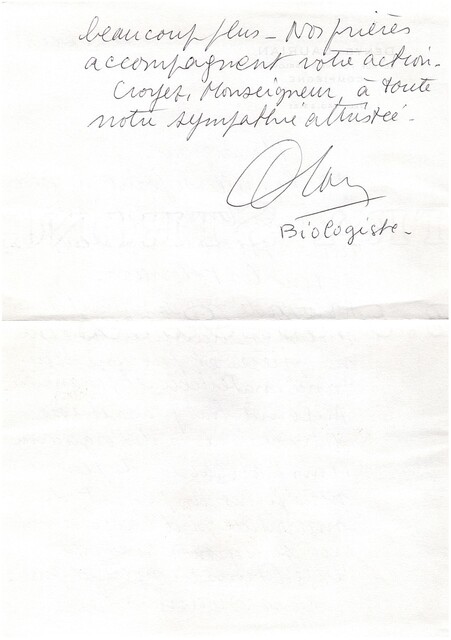 beaucoup plus - Nos prières
accompagnent votre action.
Croyez, Monseigneur, à toute
notre sympathie attristée.
Biologiste.